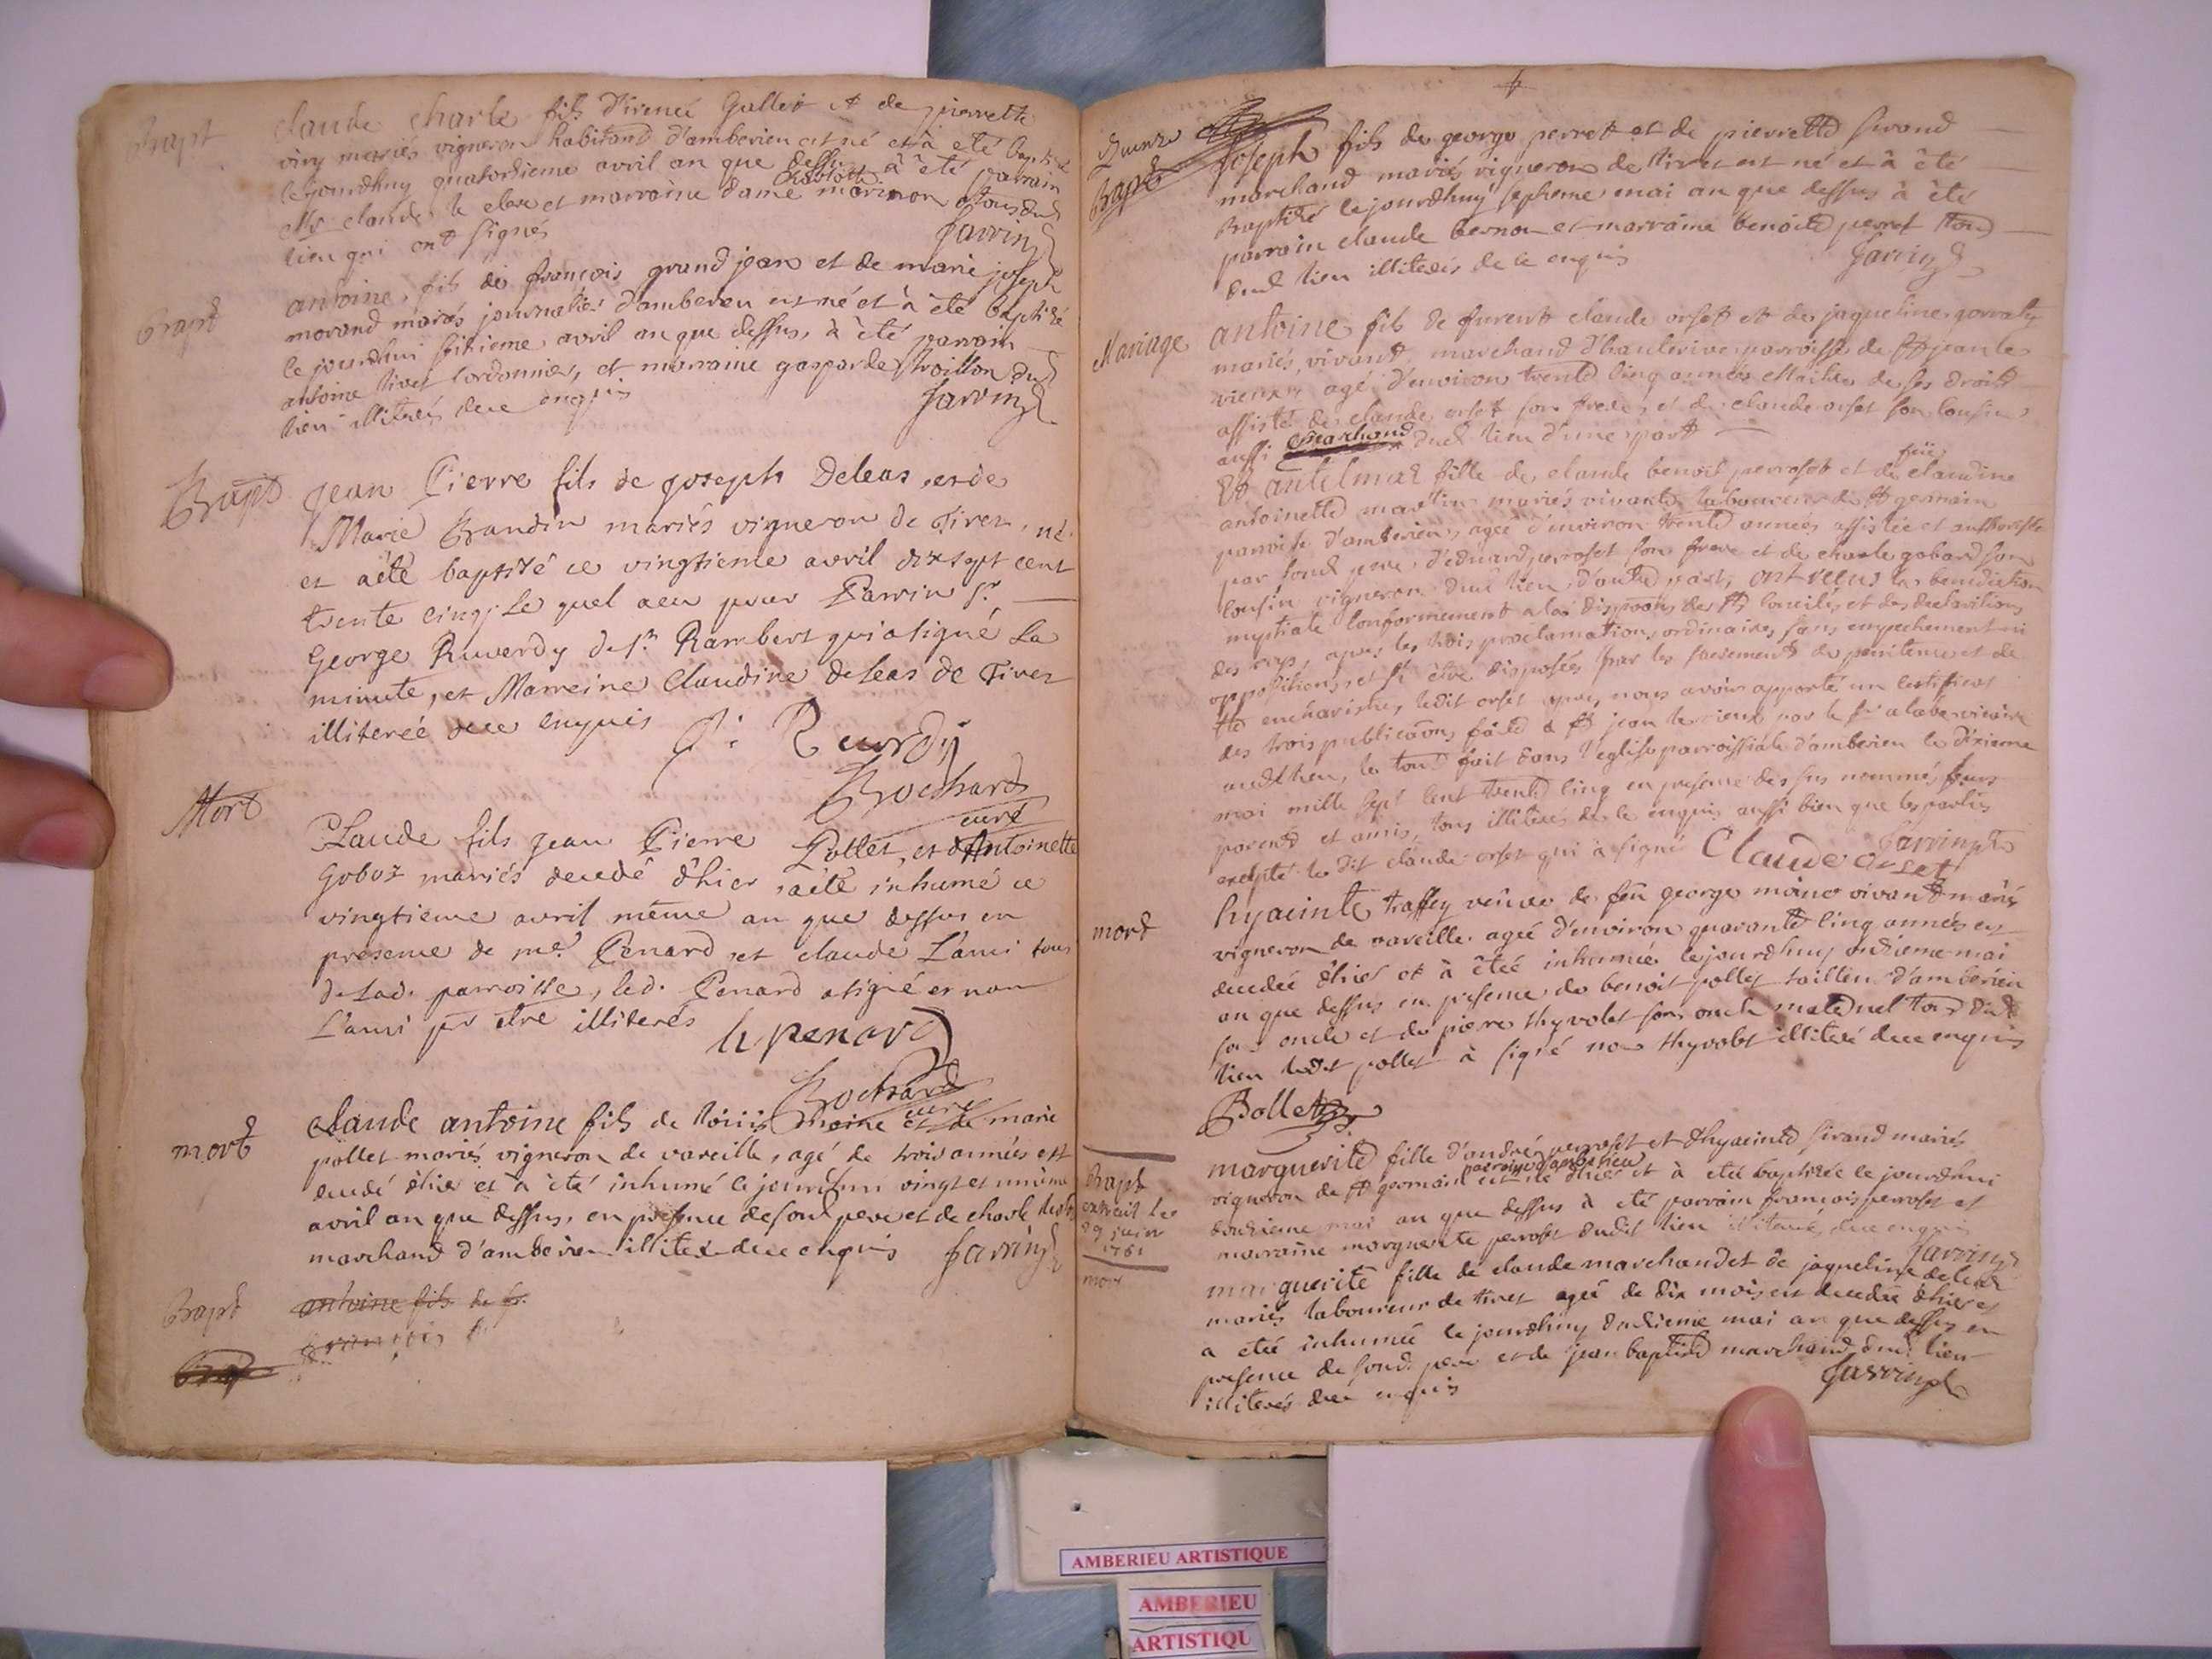 Bapt
claude charle fils d'irenée Gallet et de pierrette
viry mariés vigneron habitand d'amberieu est né et à eté baptisé
le jourdhuy quatordieme avril an que dessus à été parrain
claude le clerc et marraine dame marinon tous dud
lieu qui ont signés
Jarrin
Bapt
antoine, fils de françois grand jean et de marie joseph
morand mariés journalier d'amberieu est né et à été baptisé
le jourdhui avril an que dessus, à été parrain
antoine livet cordonnier, et marraine gasparde troillon dud
lieu illiterés de ce enquis
Jarrin
Bapt
Jean Pierre fils de Joseph Deleas, et de
Marie Grandin mariés vigneron de Tiret, né
et aété baptisé ce vingtieme avril dix sept cent
trente cinq; Le quel a eu pour Parrin Sr
George Ruverdy de St Rambert qui a signé La
minute, et Marreine Claudine deleas de Tiret
illiterée de ce enquis
Brochard
curé
Mort
Claude fils Jean Pierre Pollet, et d'Antoinette
Goboz mariés decedé d'hier, aété inhumé ce
vingtieme avril même an que dessus en
presence de me Penard, et claude L'ami tous
de lad. parroisse, led. Penard a signé et non
L'ami pr etre illiterés
penard
Brochard
curé
mort
claude antoine fils de loüis moine et de marie
pollet mariés vigneron de vareille, agé de trois années est
decedé d'hier et à été inhumé le jourdhui vingt et unieme
avril an que dessus, en presence de soud pere et de charle
marchand d'amberieu illiteré de ce enquis
Jarrin
Bapt
antoine fils de fr.
françois
Bapt
Joseph fils de george perret et de pierrette sirand
marchand mariés vigneron de tiret est né et à été
Baptisé le jourdhuy septieme mai an que dessus à été
parrain claude bernon et marraine benoite perret tous
dud lieu illiterés de ce enquis
Jarrin
Mariage
antoine fils de furent claude orset et de jaqueline
mariés, vivant marchand d'hauterive parroisse de st jean le
vieux, agé d'environ trente cinq années Maitre de ses droits
assisté de claude orset son frere, et de claude orset son cousin
aussi marchand dud lieu d'une part
Et antelmaz fille de claude benoit perroset et de füe claudine
antoinette martin mariés vivants laboureur de st germain
parroisse d'amberieu, agée d'environ trente années assistée et authorisée
par soud pere, d'eduard perroset son frere et de charle gobard son
cousin vigneron dud lieu, d'autre part, ont reçus la benediction
nuptiale conformement a la disposition des sts conciles et des declarations
des roys, apres les trois proclamations ordinaires sans empechement ni
oppositions, et s'être disposés par les sacrements de penitence et de
Ste eucharistie, ledit orset apres, nous avoir apporté un certificat
des trois publications faites à st jean le vieux par le Sr vicaire
audt lieu, le tout fait dans l'eglise parroissiale d'amberieu le dixieme
mai mille sept cent trente cinq en presence des sus nommés, leurs
parents et amis, tous illiterés de ce enquis aussi bien que les parties
excepté le dit claude orset qui à signé
Claude orset
Jarrin
mort
hyacinte traffey veuve de feu george moine vivant mariés
vigneron de vareille agée d'environ quarante cinq années est
decedée d'hier et à êtée inhumée le jourdhuy ondieme mai
an que dessus en presence de benoit pollet tailleur d'amberieu
son oncle et de pierre thyvolet son oncle maternel tous dud
lieu ledit pollet à signé non thyvolet illiteré de ce enquis
Bollet
Bapt
extrait le
29 juin
1761
marguerite fille d'andré perroset et d'hyacinte sirand mariés
vigneron de st germain parroisse d'amberieu est née d'hier et à eté baptisée le jourdhui
doudieme mai an que dessus à eté parrain françois perroset et
marraine marguerite perroset dudit lieu illiterés de ce enquis
Jarrin
mort
marguerite fille de claude marchand et de jaqueline deleas
mariés laboureur de tiret agée de dix mois est decedée d'hier et
a eté inhumée le jourdhuy doudieme mai an que dessus en
presence de soud. pere et de jean baptiste marchand dud. lieu
illiterés de ce enquis
Jarrin
AMBERIEU ARTISTIQUE
AMBERIEU
ARTISTIQU